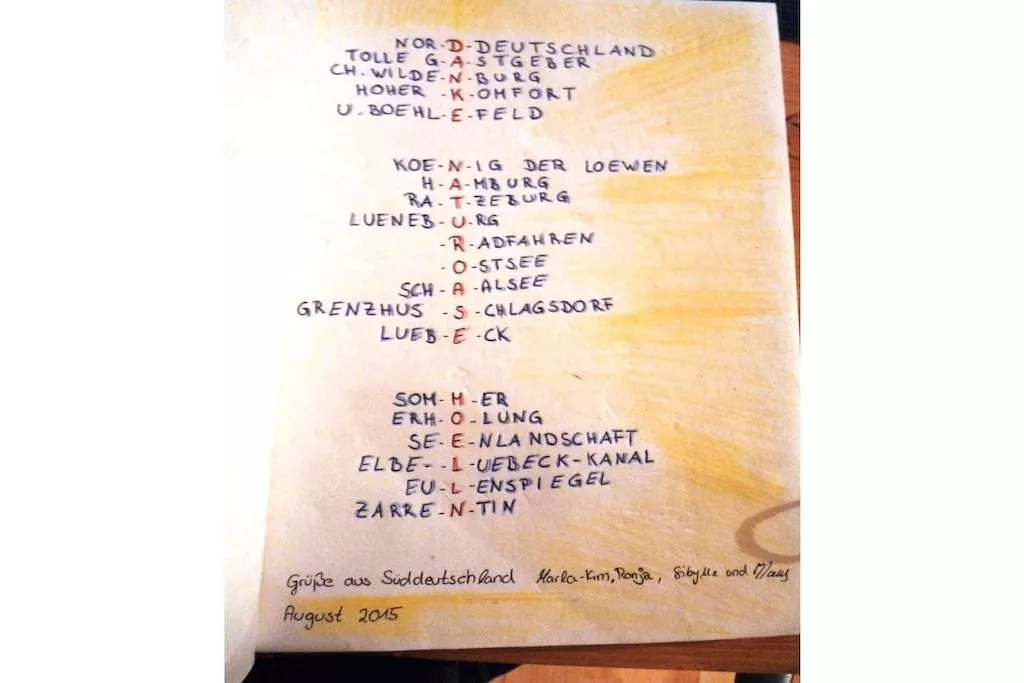 NOR-D-DEUTSCHLAND
TOLLE G-A-STGEBER
CH.WILDE-N-BURG
HOHER -K-OMFORT
U.BOEHL-E-FELD
KOE-N-IG DER LOEWEN
H-A-MBURG
RA-T-ZEBURG
LUENEB-U-RG
-R-ADFAHREN
-O-STSEE
SCH-A-ALSEE
GRENZHUS -S-CHLAGSDORF
LUEB-E-CK
SOM-M-ER
ERH-O-LUNG
SE-E-NLANDSCHAFT
ELBE--L-UEBECK-KANAL
EU-L-ENSPIEGEL
ZARRE-N-TIN
Grüße aus Süddeutschland Marla-Kim, Ronja, Sibylle und
August 2015